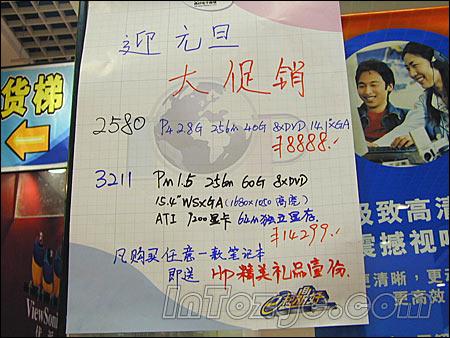 迎元旦
大促销
2580 P4 2.8G 256m 40G 8xDVD 14.1"XGA
¥8888.
3211 Pm1.5 256m 60G 8xDVD
15.4"WSXGA(1680x1050高度)
ATI 9200显卡 64m独立显存
¥14299.
凡购买任意一款笔记本
即送 HP精美礼品壹份.
货梯
ViewSonic
极致高清
震撼视听
更清晰，更
更高效
InTozgc.com